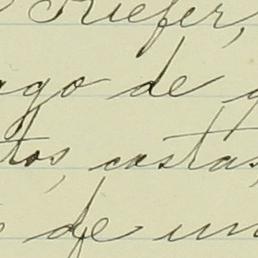 Kiefer,
ago de
tos, costas,
de un